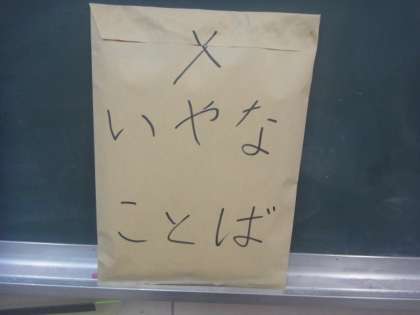 ×
いやな
ことば